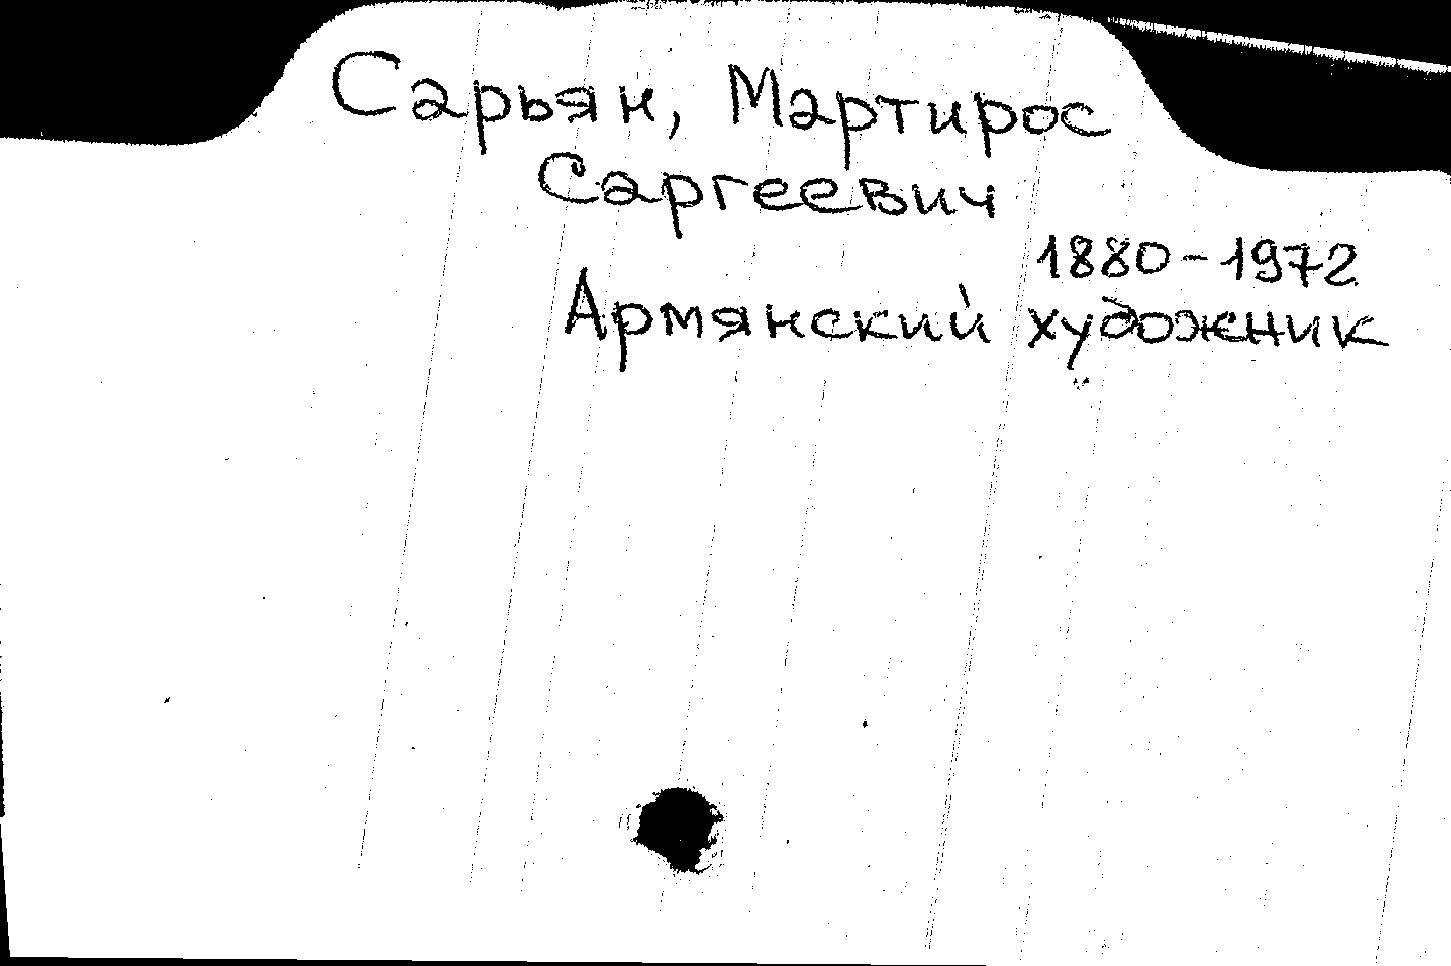 Сарьян, Мартирос
Саргеевич
1880-1972
Армянский художник